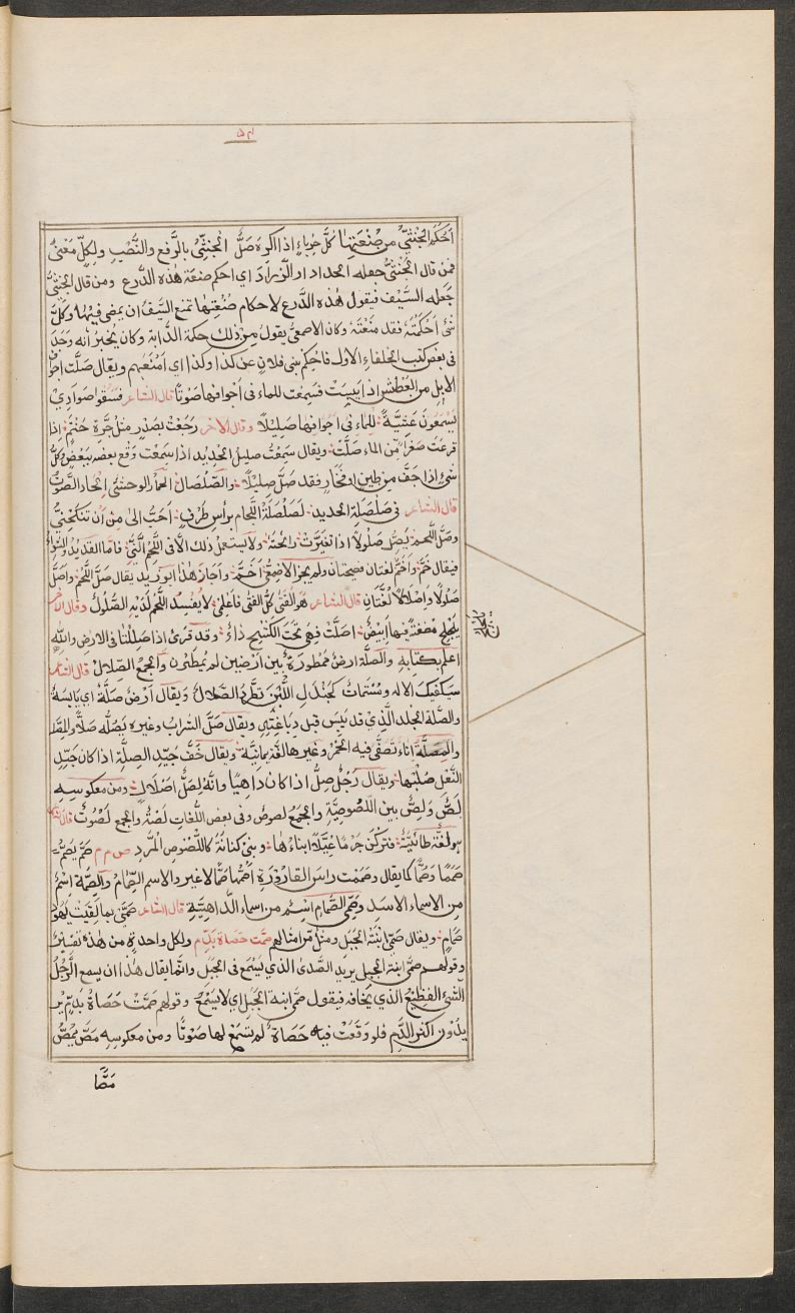 ٥٣
اَحْكَمَ الجُنْثِيُّ مِن صَنْعَتِهَا كُلَّ حِرْبَاءٍ اذا اكْرِهَ صَلَّ الجُنْثِيُّ بالرَّفع والنَّصْبِ ولِكلٍّ مَعْنًى
فمن قال الجُنْثِيُّ جعله الحداد او الزَّرَادَ اي احكم صنعة هٰذه الدِّرع ومن قال الجُنْثِيَّ
جَعله السَّيْفَ فيقول هٰذه الدَّرع لاحكام صَنْعتِها تمنع السَّيْفَ ان يمضى فيها وكلّ
شئ اَحْكَمْتَهُ فقد مَنَعْتَهُ وكان الاصمعىّ يقول ومن ذلك حكمة الدَّابّة وكان يُخبِرُ انه وَجَدَ
فى بعض كتب الخلفاء الاول فاحْكِم بنى فلان عن كذا وكذا اي امْنَعهم ويقال صَلَّت اجوا
الابل من العَطش اذا يَبِسَت فسَمِعْت للماء فى اجوافها صَوْتًا قال الشاعر فسَقَوا صوادِىَ
يَسْمَعُونَ عَشِيَّةً للماء فى اَجوافِهنا صَلِيْلًا وقال الآخر رَجَعْتُ بصَدْرٍ مثلِ جَرَّةِ حَنْتَمٍ اذا
قرعَتْ صَفرًا من الماء صَلَّتْ ويقال سَمِعْتُ صليلَ الحديد اذا سَمِعْت وَقْعَ بعضه ببَعْضٍ وكلُّ
شئ اذا جَفَّ من طين او فخّار فقد صَلَّ صلِيْلًا والصَّلْصَال الحمار الوحشىّ الحادّ الصَّوْت
قال الشاعر فى صَلْصَلَةِ الحديد لَصَلْصَلَةُ اللّجام برأس طِرْفٍ احَبُّ الىَّ مِن اَن تنكحِيْنِىْ
وصَلَّ اللّحمُ يَصِلُّ صلُولًا اذا تغيَّرَتْ رائحته ولا يستعمل ذلك الَّا فى اللّحم النِّىِّ فامّا القديدُ والشّواءُ
فيقال خَمَّ واَخَمَّ لغتان فصيحتان ولم يجز الاصمعىّ اَخَمَّ واجَاز هٰذا ابو زيد يقال صَلَّ اللّحمُ واَصَلَّ
صلُولًا واصْلَالًا لُغَتَانِ قال الشاعر هو الفَتَى كلُّ الفَتَى فاعْلَمِىْ لا يُفْسِدُ اللّحمَ لَدَيْهِ الصُّلُولُ وقال الآخر
يُلَجْلِج مُضْغَةً فيها اَنِيْضٌ اصَلَّتْ فهى تحْتَ الكَشْحِ دَاءٌ وقد قُرِئَ اذا صَلِلْنَا فى الارض والله
اعلم بكتابه والصَّلَّة ارضٌ ممطورةٌ بين اَرضين لم يُمْطَرْنَ والجمع الصِّلَالُ قال الشاعر
سيكفيك الاله ومُسْنَمَاتٌ كجَنْدَلِ لُبْنَ تطَّرِدُ الصِّلالَ ويقال اَرْضٌ صَلَّةٌ اى يابسةٌ
والصَّلَّة الجلد الَّذِى قد يَبِسَ قبل دِبَاغَتِهِ ويقال صَلَّ الشرابَ وغيره يَصُلُّه صَلًّا
والمِصَلَّةُ اناءٌ تُصَفَّى فيه الخمرُ وغيرها لُغَة يمانيّة ويقال خُفٌّ جَيِّد الصلَّة اذا كان جَيِّد
النَّعْل صُلْبَها ويقال رَجُلٌ صِلٌّ اذا كان داهيًا وانَّهُ لصِلُّ اصْلَالٍ ومن معكوسه
لَصٌّ وَلِصٌّ بين اللّصُوصِيَّة والجمع لصوصٌ وفى بعض اللُّغات لَصْتٌ والجمع لَصُوْتٌ قال
هو لُغَة طائيّة فتركْنَ جَرْمًا عُيَّلًا ابناءُ لها وبنى كنانةَ كاللُّصُوتِ المُرَّد ص م م صَمَّ يَصَمُّ
صَمَمًا وصَمًّا كما يقال وصَمَمْت راسَ القارُوْرَةِ اَصُمُّها صَمًّا لا غير والاسم الصِّمَامُ والصِّمَّة اسْمٌ
مِن الاسماء الاسد وصَمِّى الصَّمَامِ اسْمٌ من اسماء الدَّاهِيَةِ قال الشاعر صَمِّى بما لقيَتْ يَهُوْدُ
صَمَامِ ويقال صَمِّى ابْنَةَ الجَبَلِ ومثلٌ من امثالهم صَمَّت حَصَاةٌ بِدَمٍ ولكل واحدةٍ من هٰذه تفسيرٌ
وقولهم صَمِّى ابنة الجبل يريد الصَّدَى الذى يُسْمَع فى الجبل وانّما يقال هٰذا ان يسمع الرَّجُلُ
الشئَ الفظيْعَ الذى يخافه فيقول صَمِّى ابنة الجبل اى لا يُسْمَع وقولهم صَمَّتْ حَصَاةٌ بِدَمٍ ير
يدُوْن اَكثر الدَّمِ فلو وَقَعَتْ فيه حَصَاةٌ لم تسْمَعْ لها صَوْتًا ومن معكوسه مَصَّ يَمُصُّ
مَصًّا